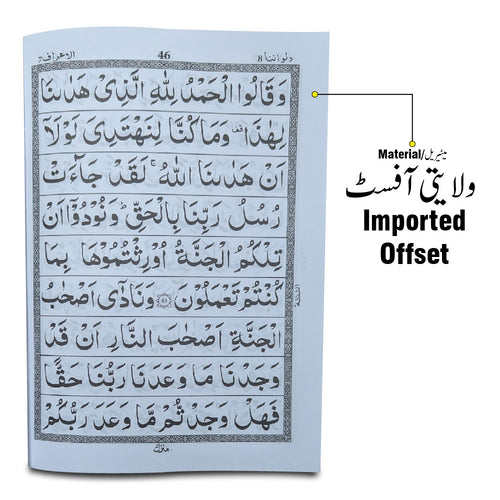 ولواننا ٨
46
الاعراف ٧
وَقَالُوا الْحَمْدُ لِلّٰهِ الَّذِىْ هَدٰىنَا
لِهٰذَا ۫ وَمَا كُنَّا لِنَهْتَدِىَ لَوْلَاۤ
اَنْ هَدٰىنَا اللّٰهُ ۚ لَقَدْ جَآءَتْ
رُسُلُ رَبِّنَا بِالْحَقِّ ؕ وَنُوْدُوْۤا اَنْ
تِلْكُمُ الْجَنَّةُ اُوْرِثْتُمُوْهَا بِمَا
كُنْتُمْ تَعْمَلُوْنَ ﴿43﴾ وَنَادٰۤى اَصْحٰبُ
الْجَنَّةِ اَصْحٰبَ النَّارِ اَنْ قَدْ
وَجَدْنَا مَا وَعَدَنَا رَبُّنَا حَقًّا
فَهَلْ وَجَدْتُّمْ مَّا وَعَدَ رَبُّكُمْ
منزل ٢
Material/میٹیریل
ولایتی آفسٹ
Imported
Offset